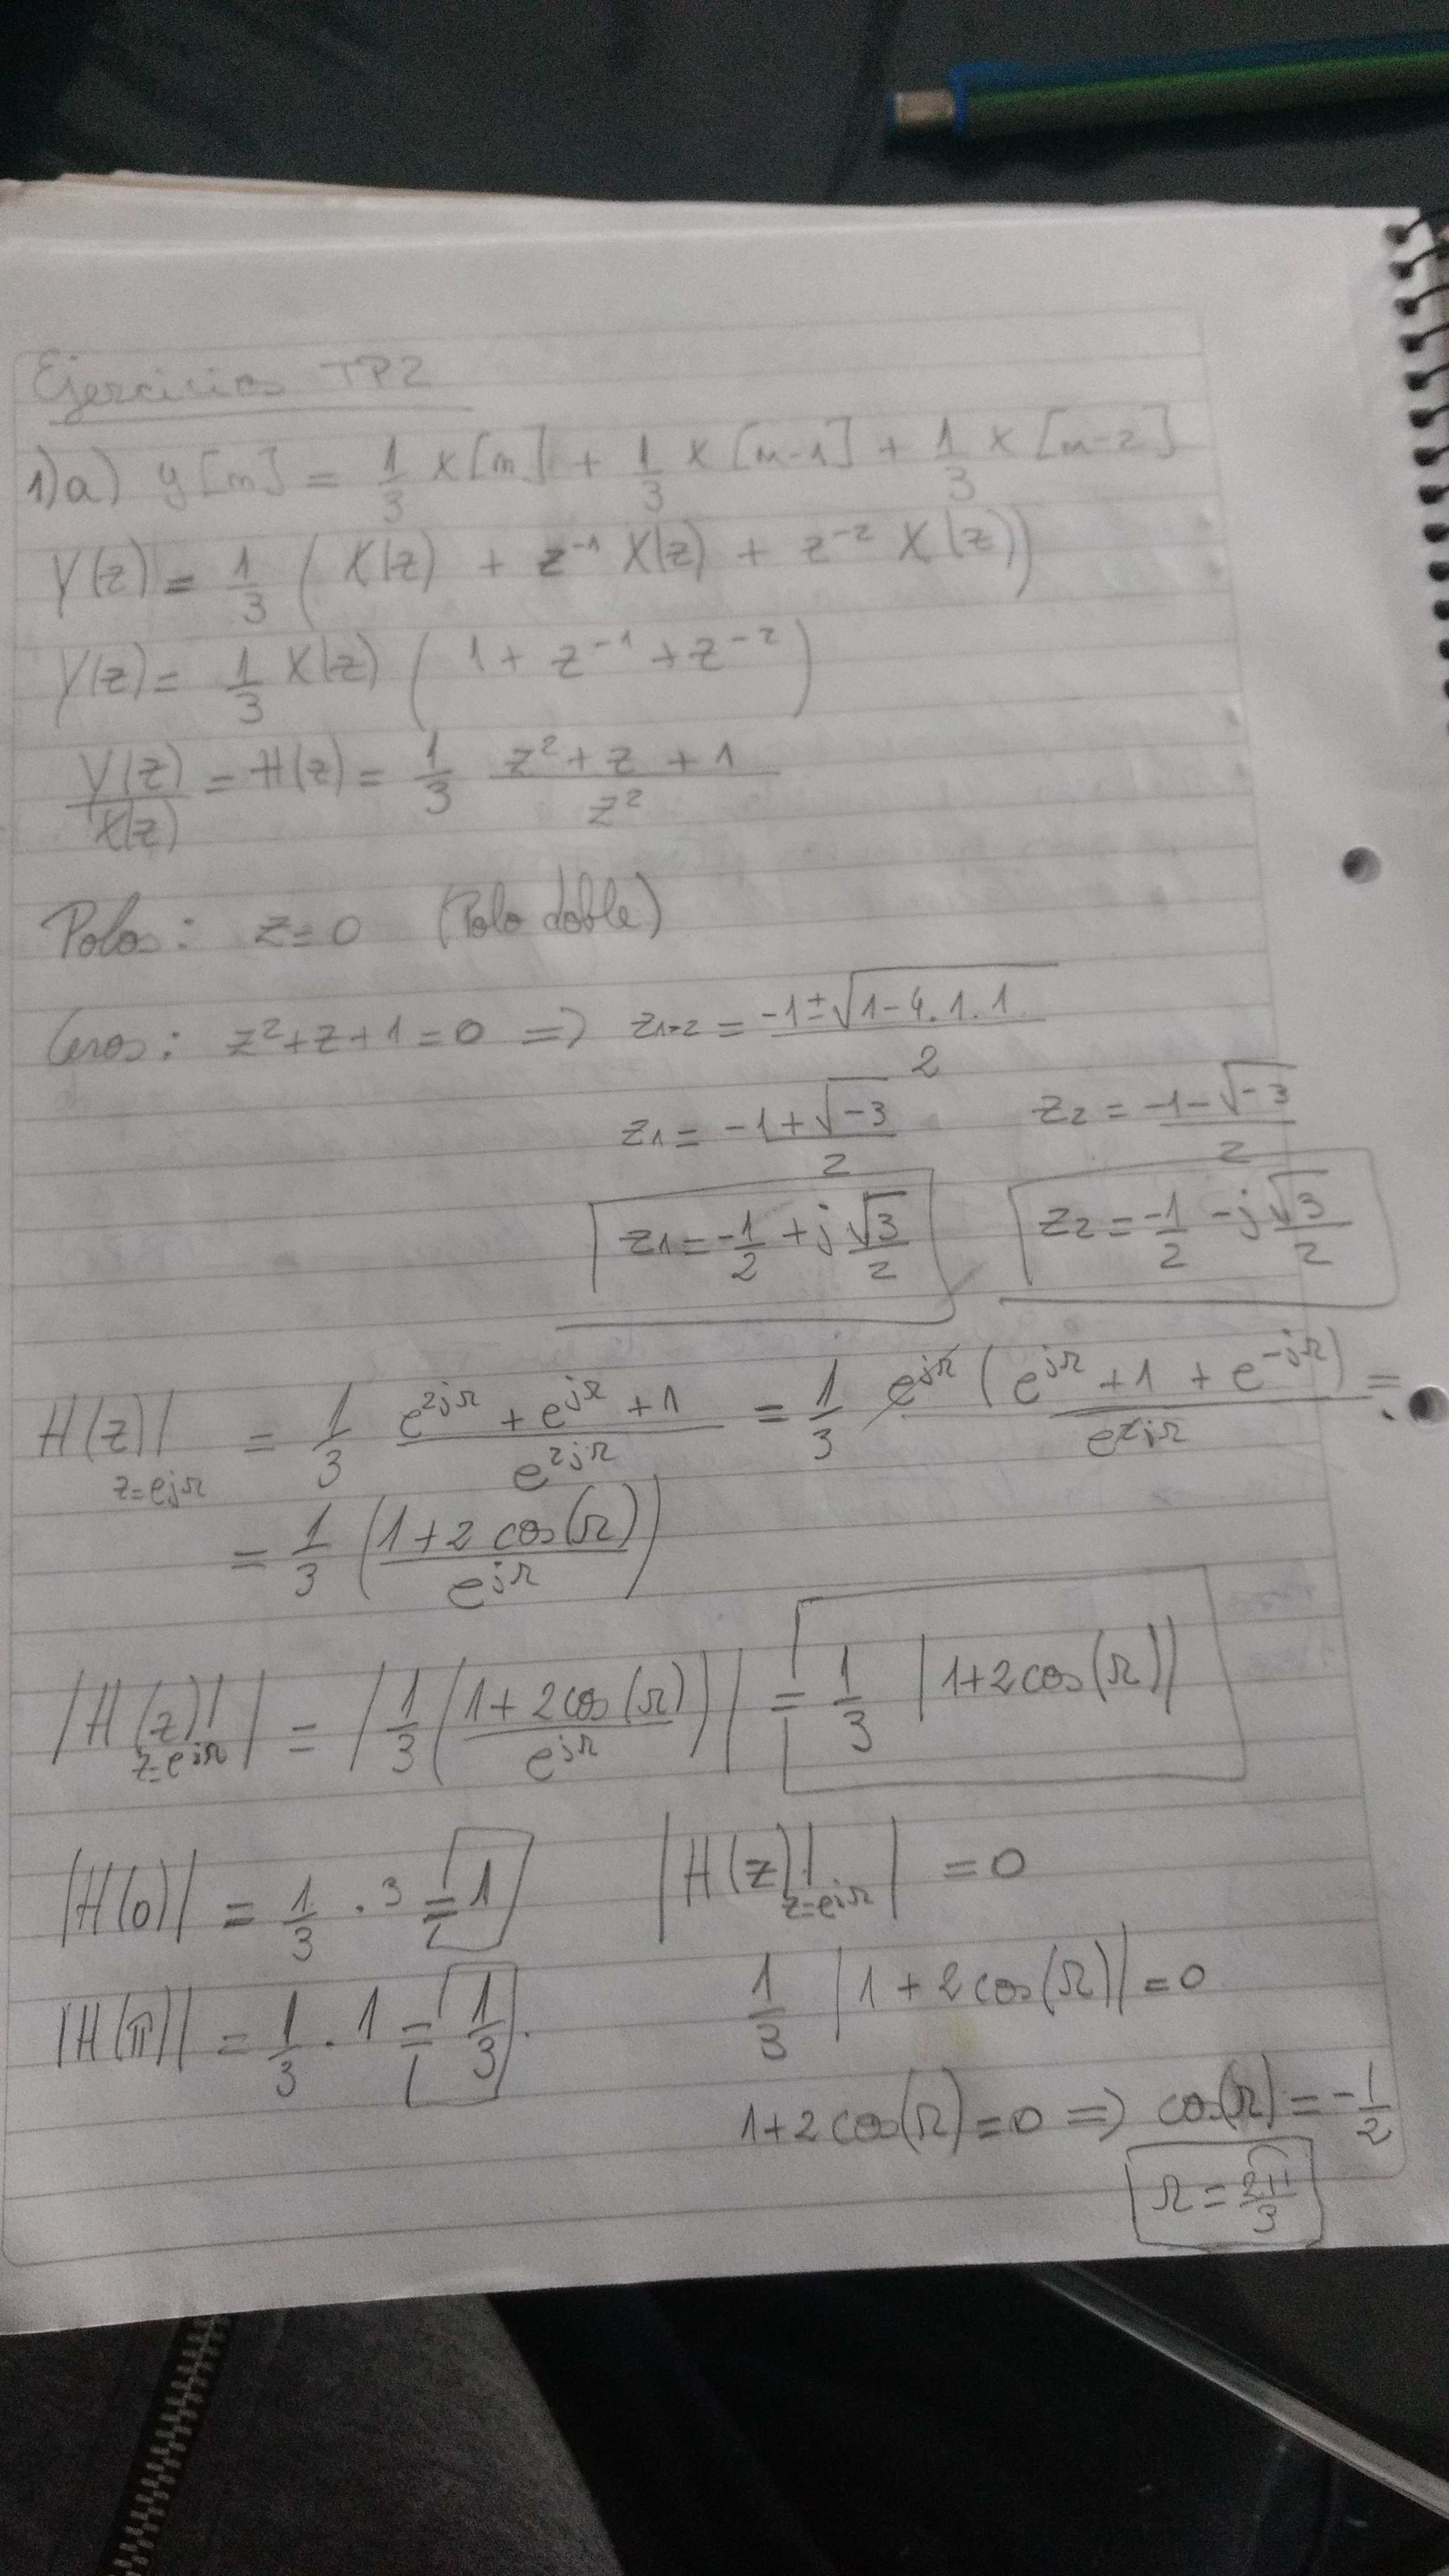 Ejercicios TP2
1)a) y[n] = 1/3 x[n] + 1/3 x[n-1] + 1/3 x[n-2]
Y(z) = 1/3 (X(z) + z⁻¹ X(z) + z⁻² X(z))
Y(z) = 1/3 X(z) (1 + z⁻¹ + z⁻²)
Y(z)/X(z) = H(z) = 1/3 (z² + z + 1)/z²
Polos: z=0 (Polo doble)
Ceros: z²+z+1=0 => z₁,₂ = (-1±√(1-4.1.1))/2
z₁ = (-1+√-3)/2 z₂ = (-1-√-3)/2
z₁ = -1/2 + j √3/2 z₂ = -1/2 - j √3/2
H(z)|z=e^jΩ = 1/3 (e^2jΩ + e^jΩ + 1)/e^2jΩ = 1/3 e^jΩ (e^jΩ + 1 + e^-jΩ)/e^2jΩ =
= 1/3 ((1+2 cos(Ω))/e^jΩ)
|H(z)|z=e^jΩ| = |1/3 ((1+2cos(Ω))/e^jΩ)| = 1/3 |1+2cos(Ω)|
|H(0)| = 1/3 . 3 = 1 |H(z)|z=e^jΩ| = 0
|H(π)| = 1/3 . 1 = 1/3. 1/3 |1+2cos(Ω)| = 0
1+2cos(Ω)=0 => cos(Ω) = -1/2
Ω = 2π/3